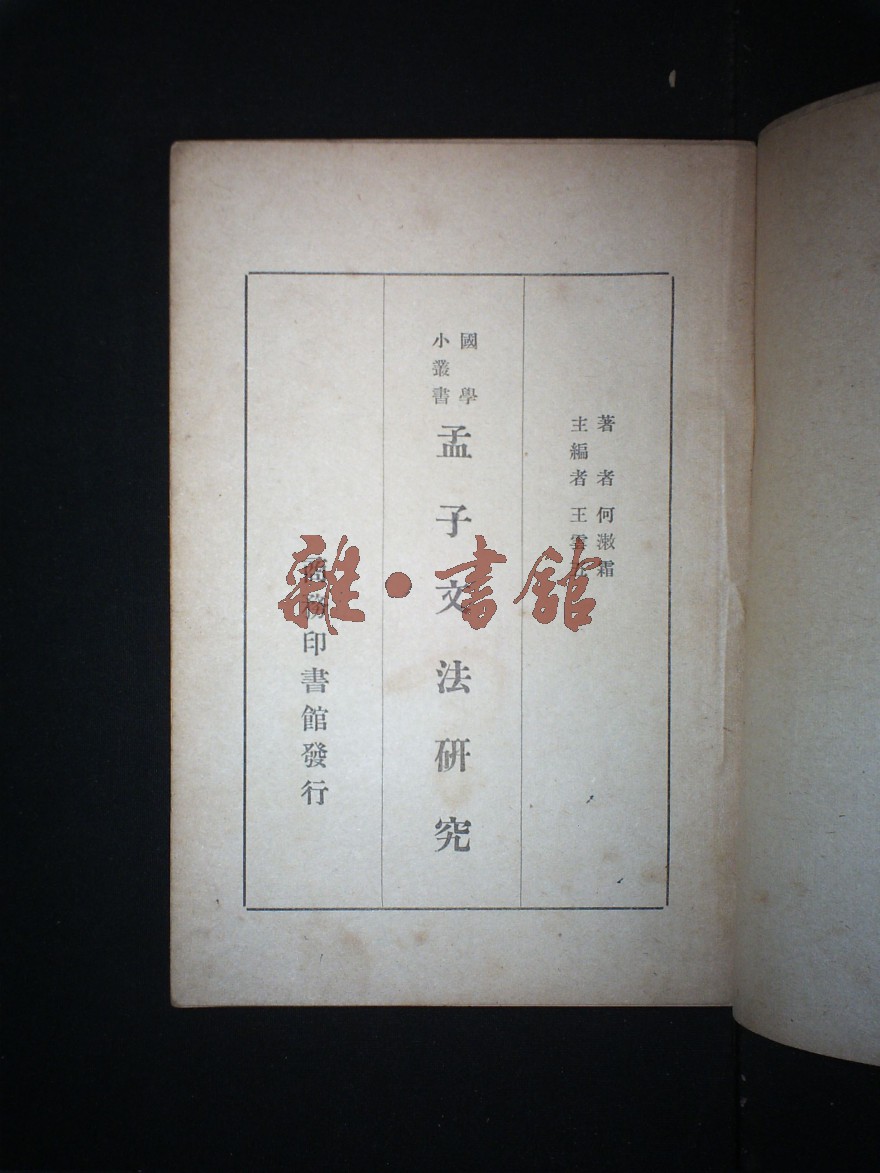 著者 何漱霜
主編者 王雲五
國學
小叢書
孟子文法研究
商務印書館發行
雜·書館